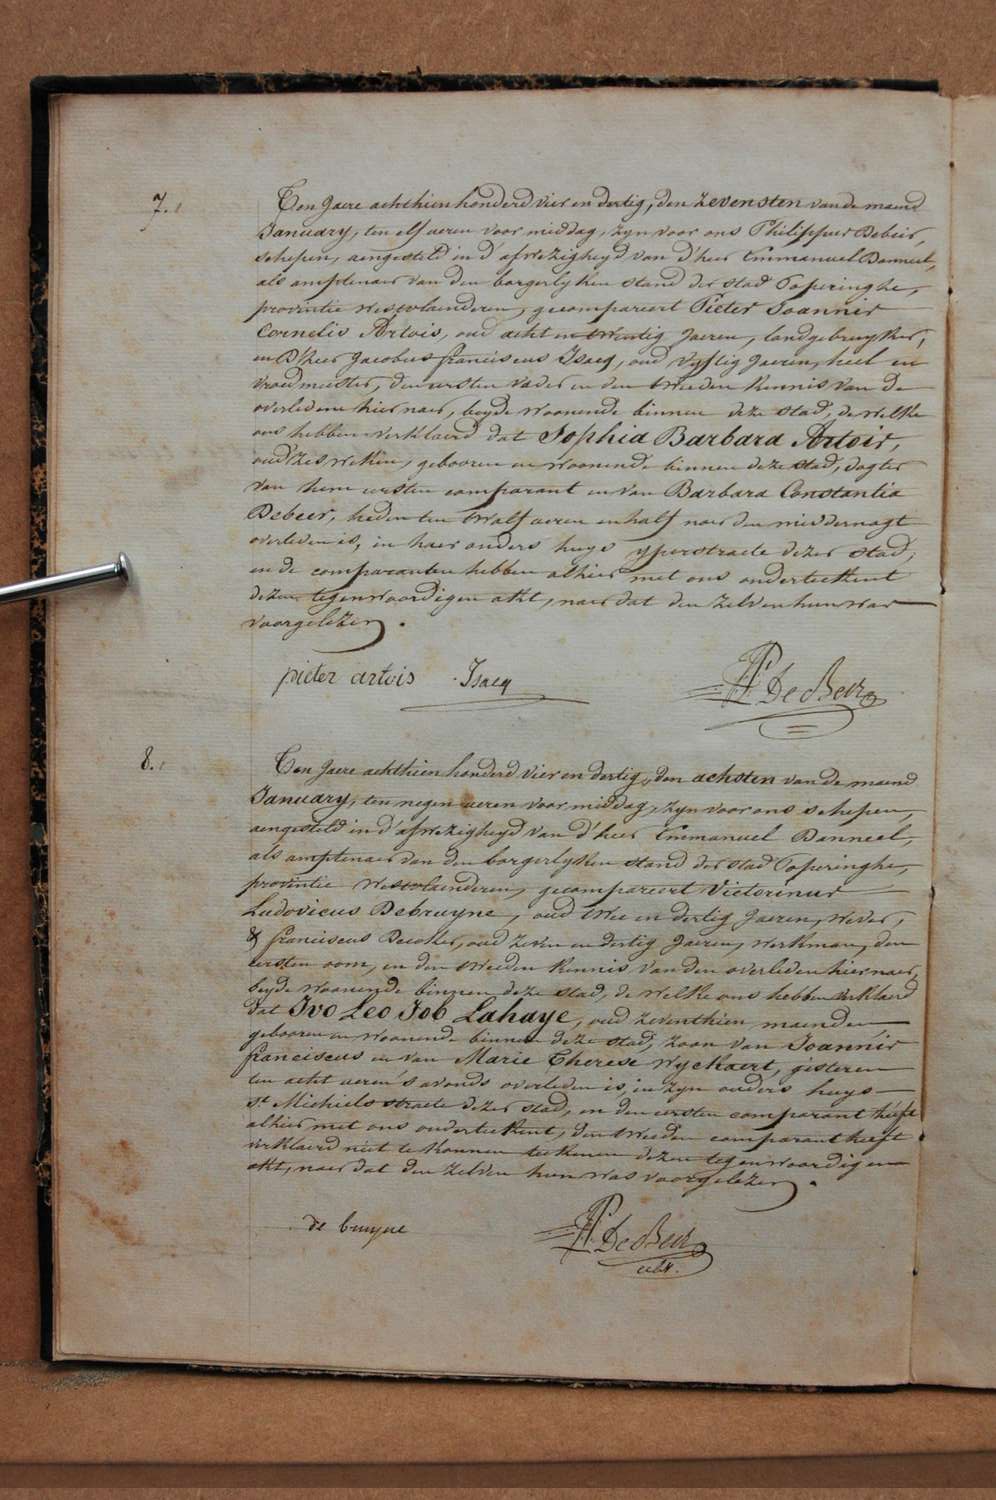 7.
Ten Jaere achthien honderd vier en dertig, den zevensten van de maend
January, ten elf ueren voor middag, zyn voor ons Philippus Debeir,
schepen, aengesteld in d'afwezigheyd van d'heer Emmanuel Banneel,
als amptenaer van den borgerlyken stand der stad Poperinghe,
provintie westvlaenderen, gecompareert Pieter Joannis
Cornelis Artois, oud acht en twintig Jaeren, landgebruyker,
en D'heer Jacobus franciscus Isaeq, oud vyftig Jaeren, heel en
vroedmeester, den eersten vader en den tweeden kennis van de
overledene hier naer, beyde woonende binnen deze stad, de welke
ons hebben verklaerd dat Sophia Barbara Artois,
oud zes weken, gebooren en woonende binnen deze stad, dogter
van hem eersten comparant en van Barbara Constantia
Debeer, heden ten twalf ueren en half naer den middernagt
overleden is, in haer ouders huys yperstraete dezer stad,
en de comparanten hebben alhier met ons onderteekent
dezen tegenwoordigen akt, naer dat den zelven hun was
voorgelezen.
pieter artois Isaeq PH De Beir
8.
Ten Jaere achthien honderd vier en dertig, den achsten van de maend
January, ten negen ueren voor middag, zyn voor ons schepen,
aengesteld in d'afwezigheyd van d'heer Emmanuel Banneel,
als amptenaer van den borgerlyken stand der stad Poperinghe,
provintie westvlaenderen, gecompareert Victorinus
Ludovicus Debruyne, oud twee en dertig Jaeren, wever,
& franciscus oud zeven en dertig Jaeren, werkman, den
eersten oom, en den tweeden kennis van den overleden hier naer,
beyde woonende binnen deze stad, de welke ons hebben verklaerd
dat Ivo Leo Job Lahaye, oud zeventhien maenden
gebooren en woonende binnen deze stad, zoon van Joannis
franciscus en van Marie Therese Wyckaert, gisteren
ten acht ueren 's avonds overleden is, in zyn ouders huys
St Michiels straete dezer stad, en den eersten comparant heeft
alhier met ons onderteekent, den tweeden comparant heeft
verklaerd niet te konnen teekenen dezen tegenwoordigen
akt, naer dat den zelven hun was voorgelezen.
de bruyne PH De Beir